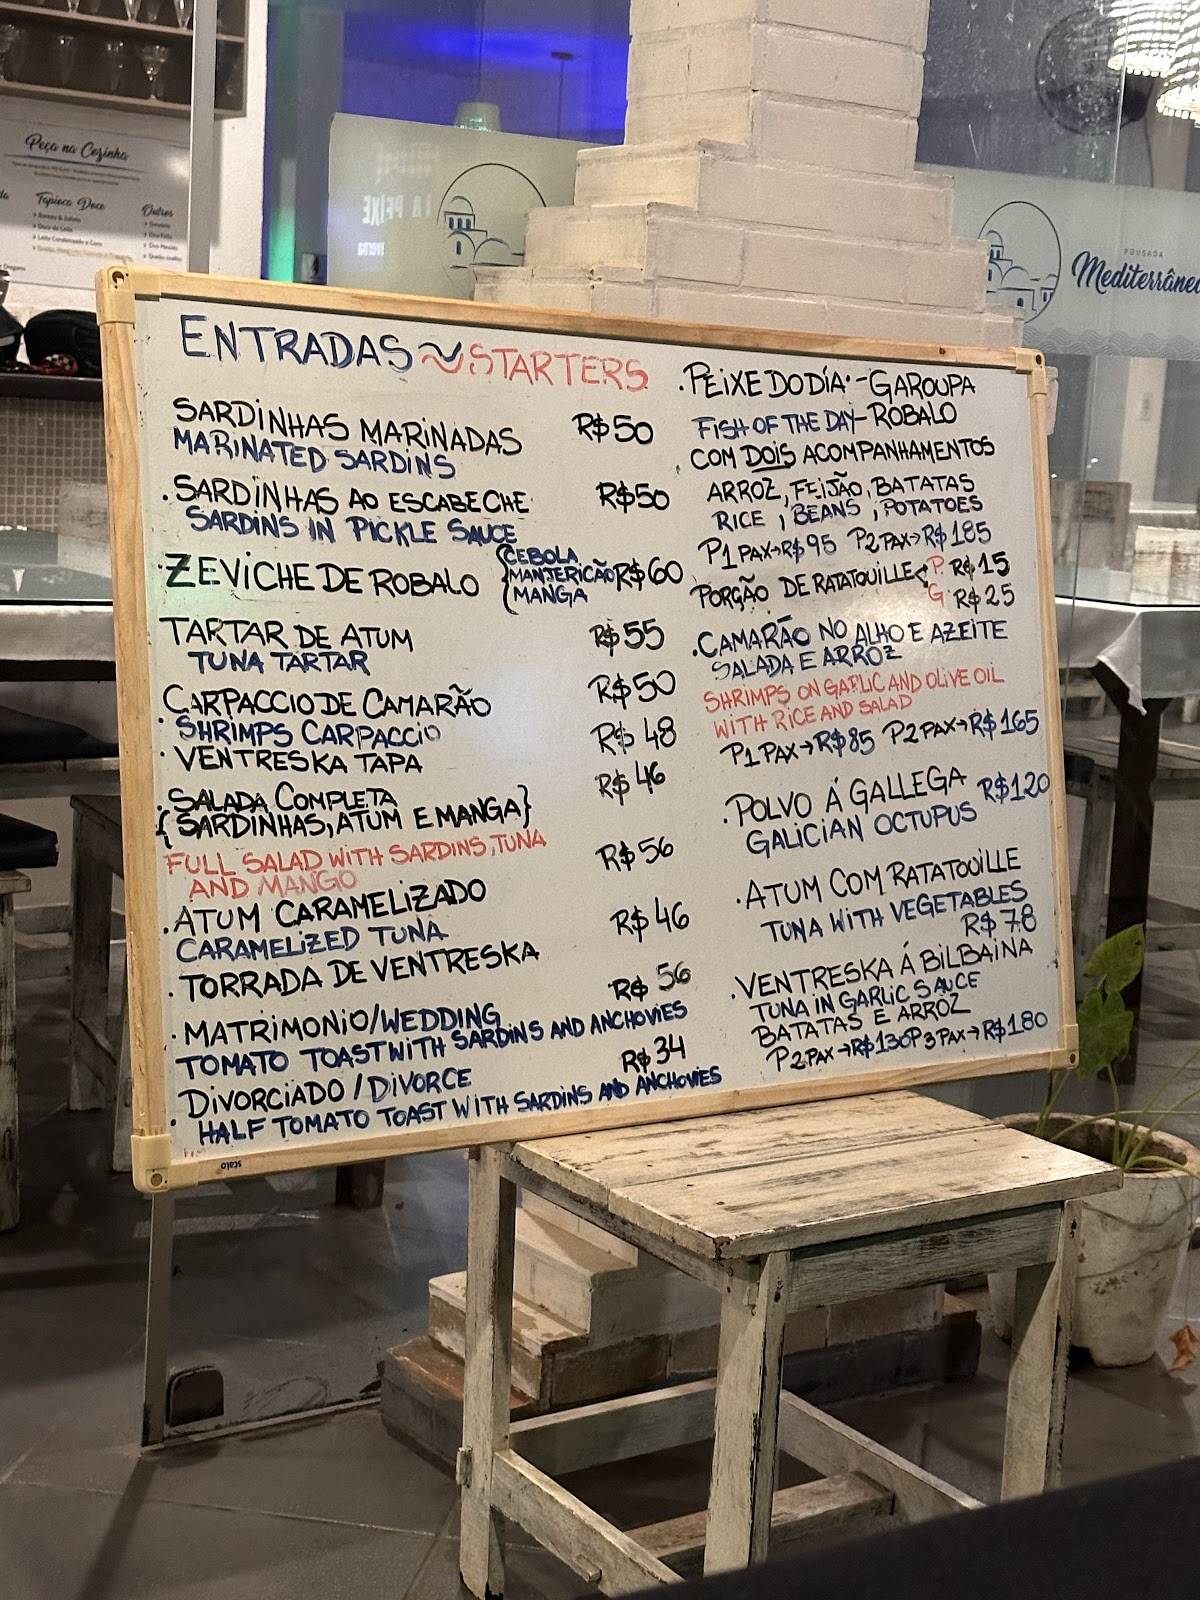 Peça na Cozinha
Tapioca Doce
Outros
Banana & Açúcar
Doce de Leite
Leite Condensado e Coco
POUSADA
Mediterrâneo
ENTRADAS ~ STARTERS
SARDINHAS MARINADAS R$50
MARINATED SARDINS
.SARDINHAS AO ESCABECHE R$50
SARDINS IN PICKLE SAUCE
.ZEVICHE DE ROBALO { CEBOLA MANJERICÃO MANGA R$60
TARTAR DE ATUM R$55
TUNA TARTAR
CARPACCIO DE CAMARÃO R$50
.SHRIMPS CARPACCIO
.VENTRESKA TAPA R$48
.SALADA COMPLETA R$46
{SARDINHAS, ATUM E MANGA}
FULL SALAD WITH SARDINS, TUNA
AND MANGO
.ATUM CARAMELIZADO R$56
CARAMELIZED TUNA
.TORRADA DE VENTRESKA R$46
.MATRIMONIO/WEDDING R$56
TOMATO TOAST WITH SARDINS AND ANCHOVIES
DIVORCIADO / DIVORCE R$34
. HALF TOMATO TOAST WITH SARDINS AND ANCHOVIES
.PEIXE DO DÍA -GAROUPA
FISH OF THE DAY-ROBALO
COM DOIS ACOMPANHAMENTOS
ARROZ, FEIJÃO, BATATAS
RICE , BEANS , POTATOES
P1 PAX→R$95 P2 PAX→R$185
PORÇÃO DE RATATOUILLE P. R$15
G R$25
.CAMARÃO NO ALHO E AZEITE
SALADA E ARROZ
SHRIMPS ON GARLIC AND OLIVE OIL
WITH RICE AND SALAD
P1 PAX→R$85 P2 PAX→R$165
.POLVO Á GALLEGA R$120
GALICIAN OCTUPUS
.ATUM COM RATATOUILLE
TUNA WITH VEGETABLES
R$ 78
.VENTRESKA Á BILBAINA
TUNA IN GARLIC SAUCE
BATATAS E ARROZ
P2 PAX→R$130 P3 PAX→R$180
stalo